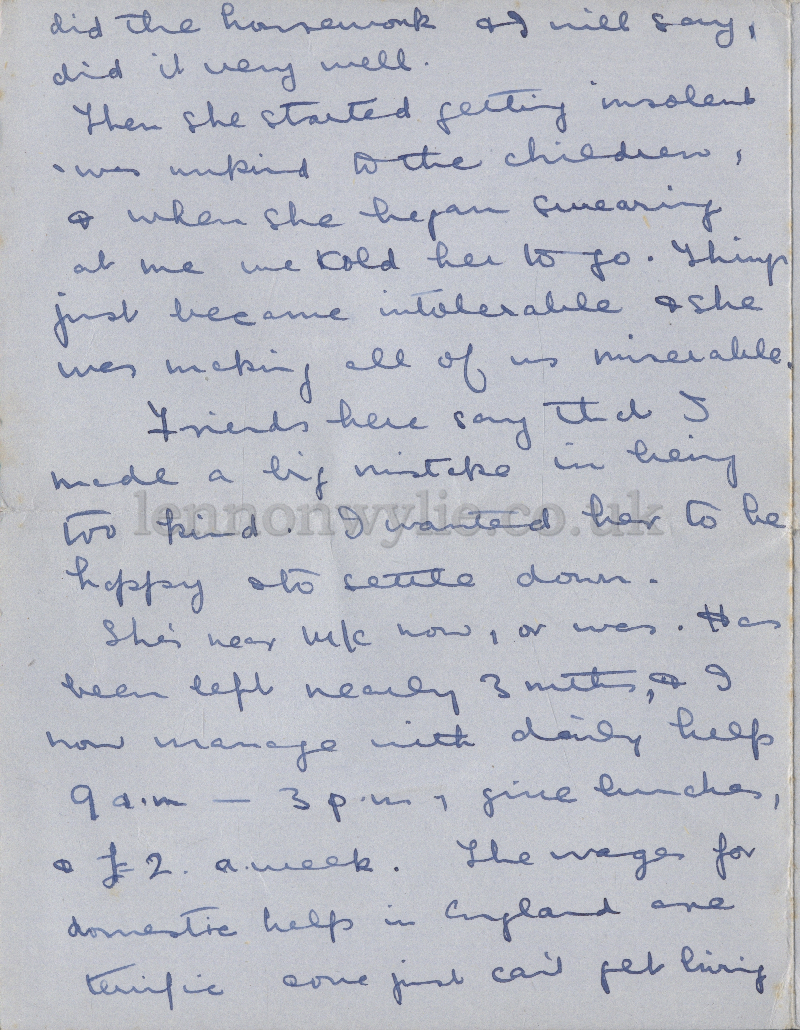 did the housework & I will say,
did it very well.
Then she started getting insolent
, was unkind to the children,
& when she began swearing
at me we told her to go. Things
just became intolerable & she
was making all of us miserable.
Friends here say that I
made a big mistake in being
too kind. I wanted her to be
happy & to settle down.
She's near M/c now, or was. Has
been left nearly 3 mths, & I
now manage with daily help
9 a.m — 3 p.m, give lunches,
& £2. a week. The wages for
domestic help in England are
terrific & one just can't get living
lennonwylie.co.uk